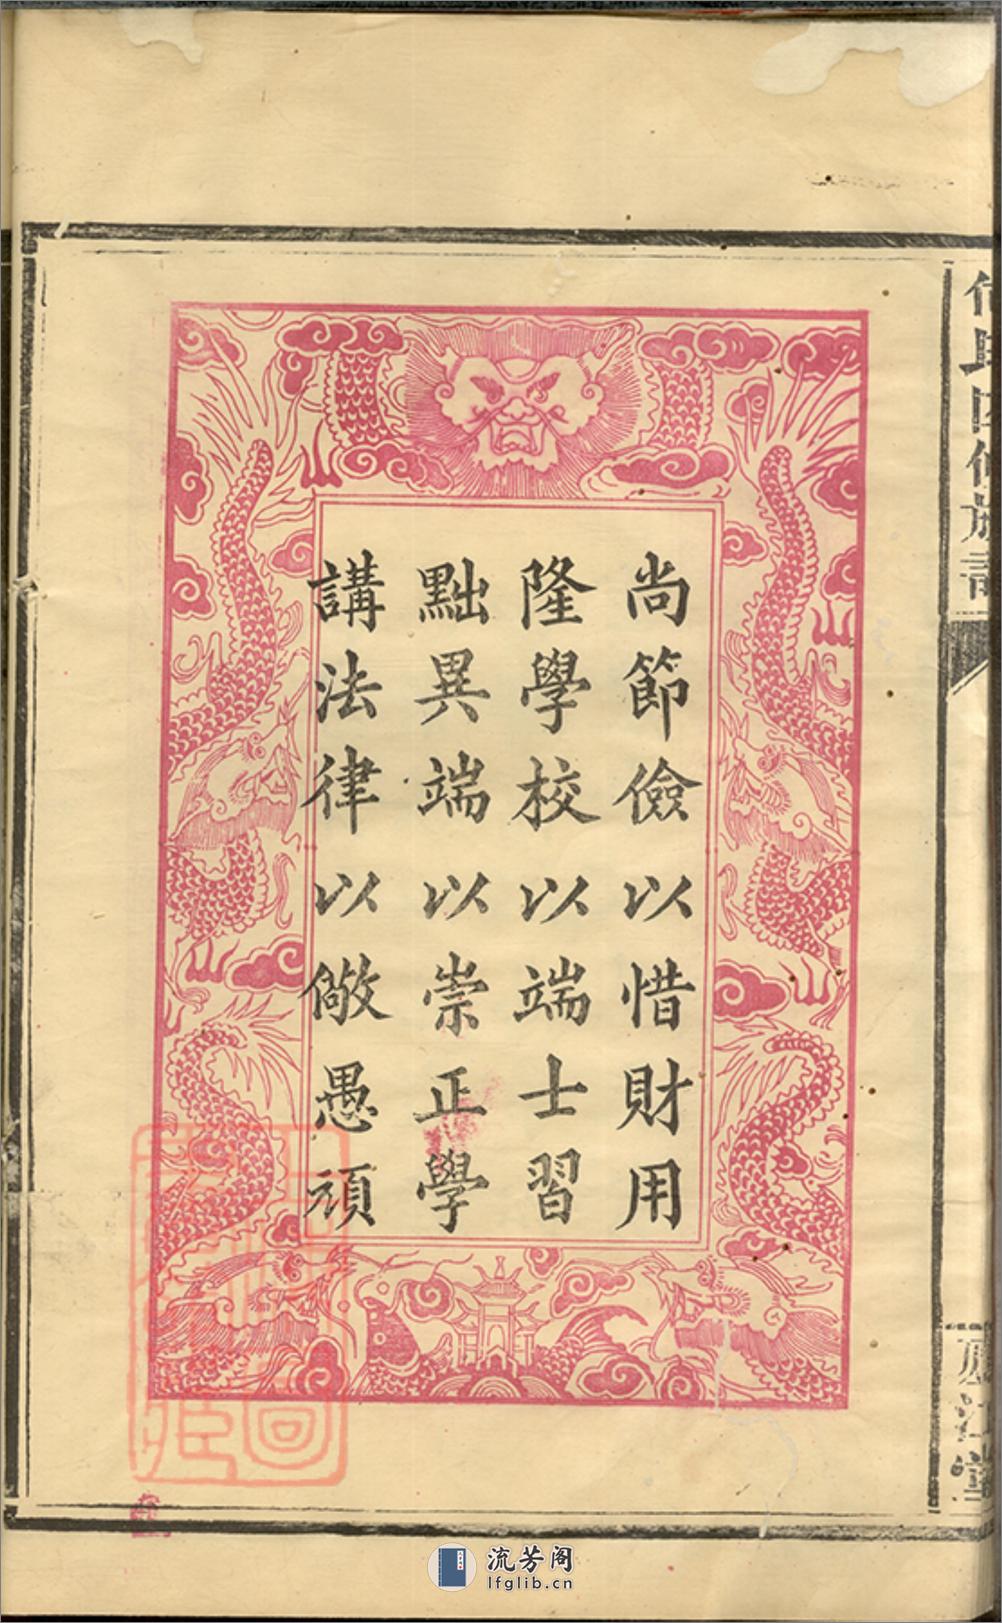 尚節儉以惜財用
隆學校以端士習
黜異端以崇正學
講法律以儆愚頑
廬江堂
流芳阁
lfglib.cn